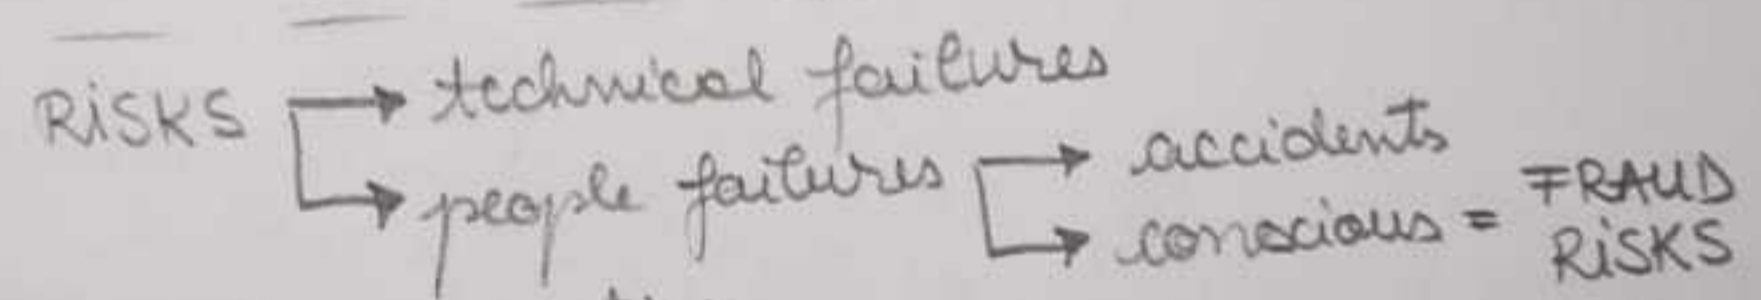 RiSKS → technical failures
→ people failures → accidents
→ conscious = FRAUD RiSKS